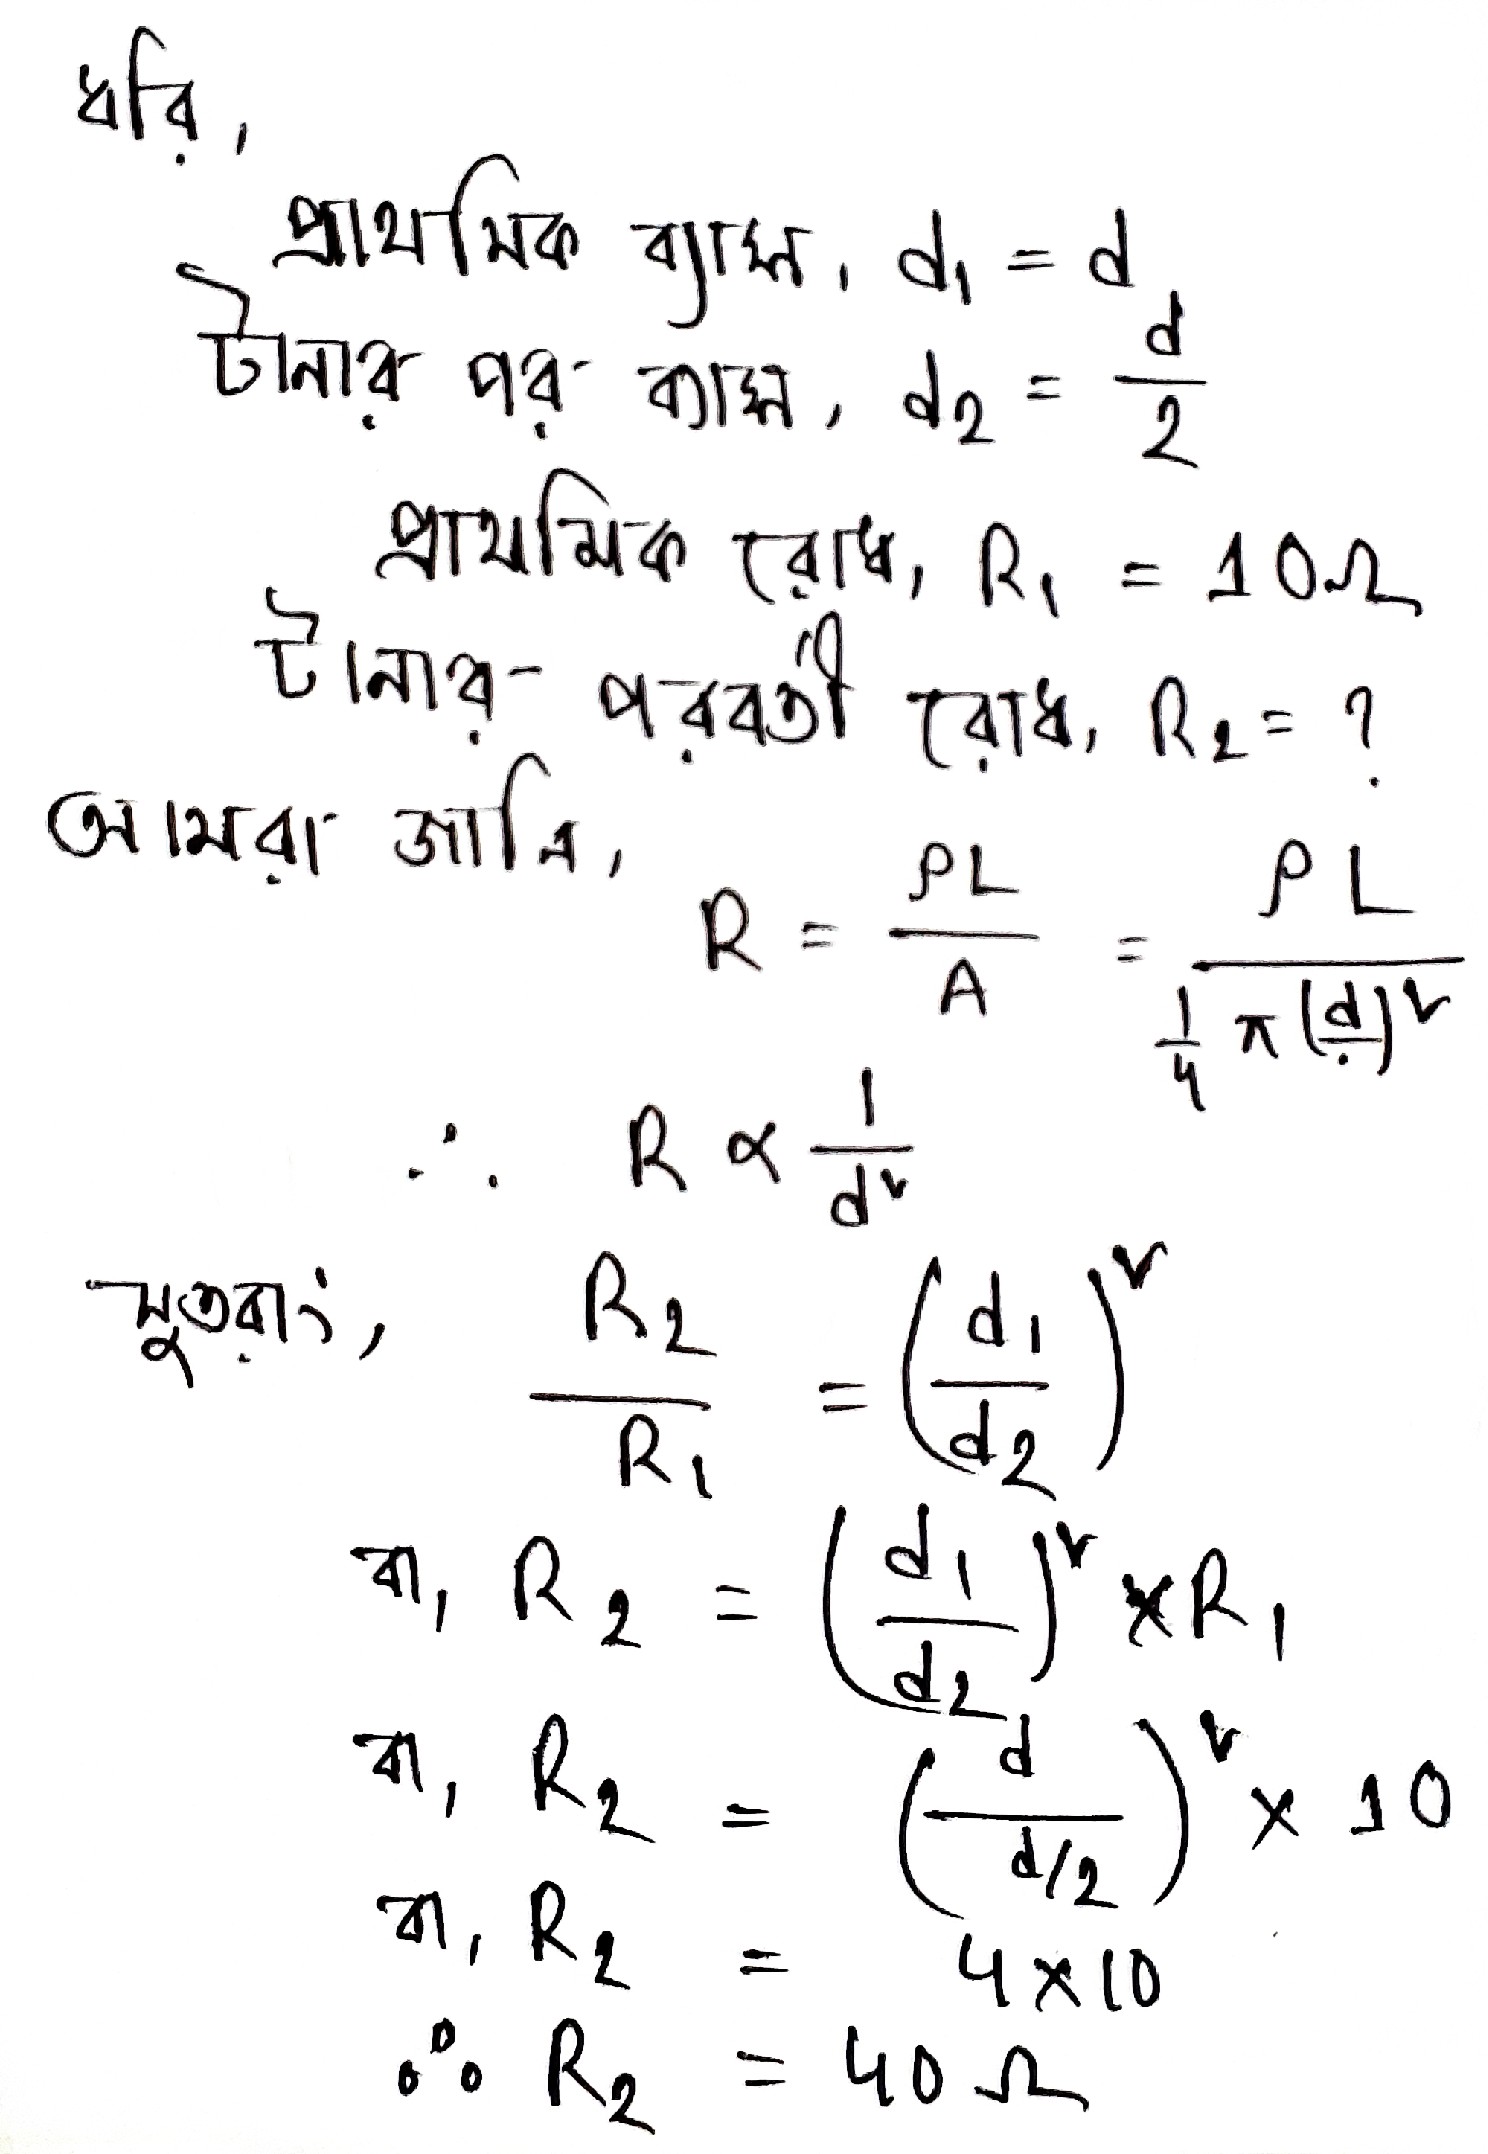 ধরি,
প্রাথমিক ব্যাস, d₁ = d
টানার পর ব্যাস, d₂ = d/2
প্রাথমিক রোধ, R₁ = 10Ω
টানার পরবর্তী রোধ, R₂ = ?
আমরা জানি,
R = ρL/A = ρL/(1/4 π(d)²)
∴ R ∝ 1/d²
সুতরাং, R₂/R₁ = (d₁/d₂)²
বা, R₂ = (d₁/d₂)² × R₁
বা, R₂ = (d/(d/2))² × 10
বা, R₂ = 4 × 10
∴ R₂ = 40 Ω